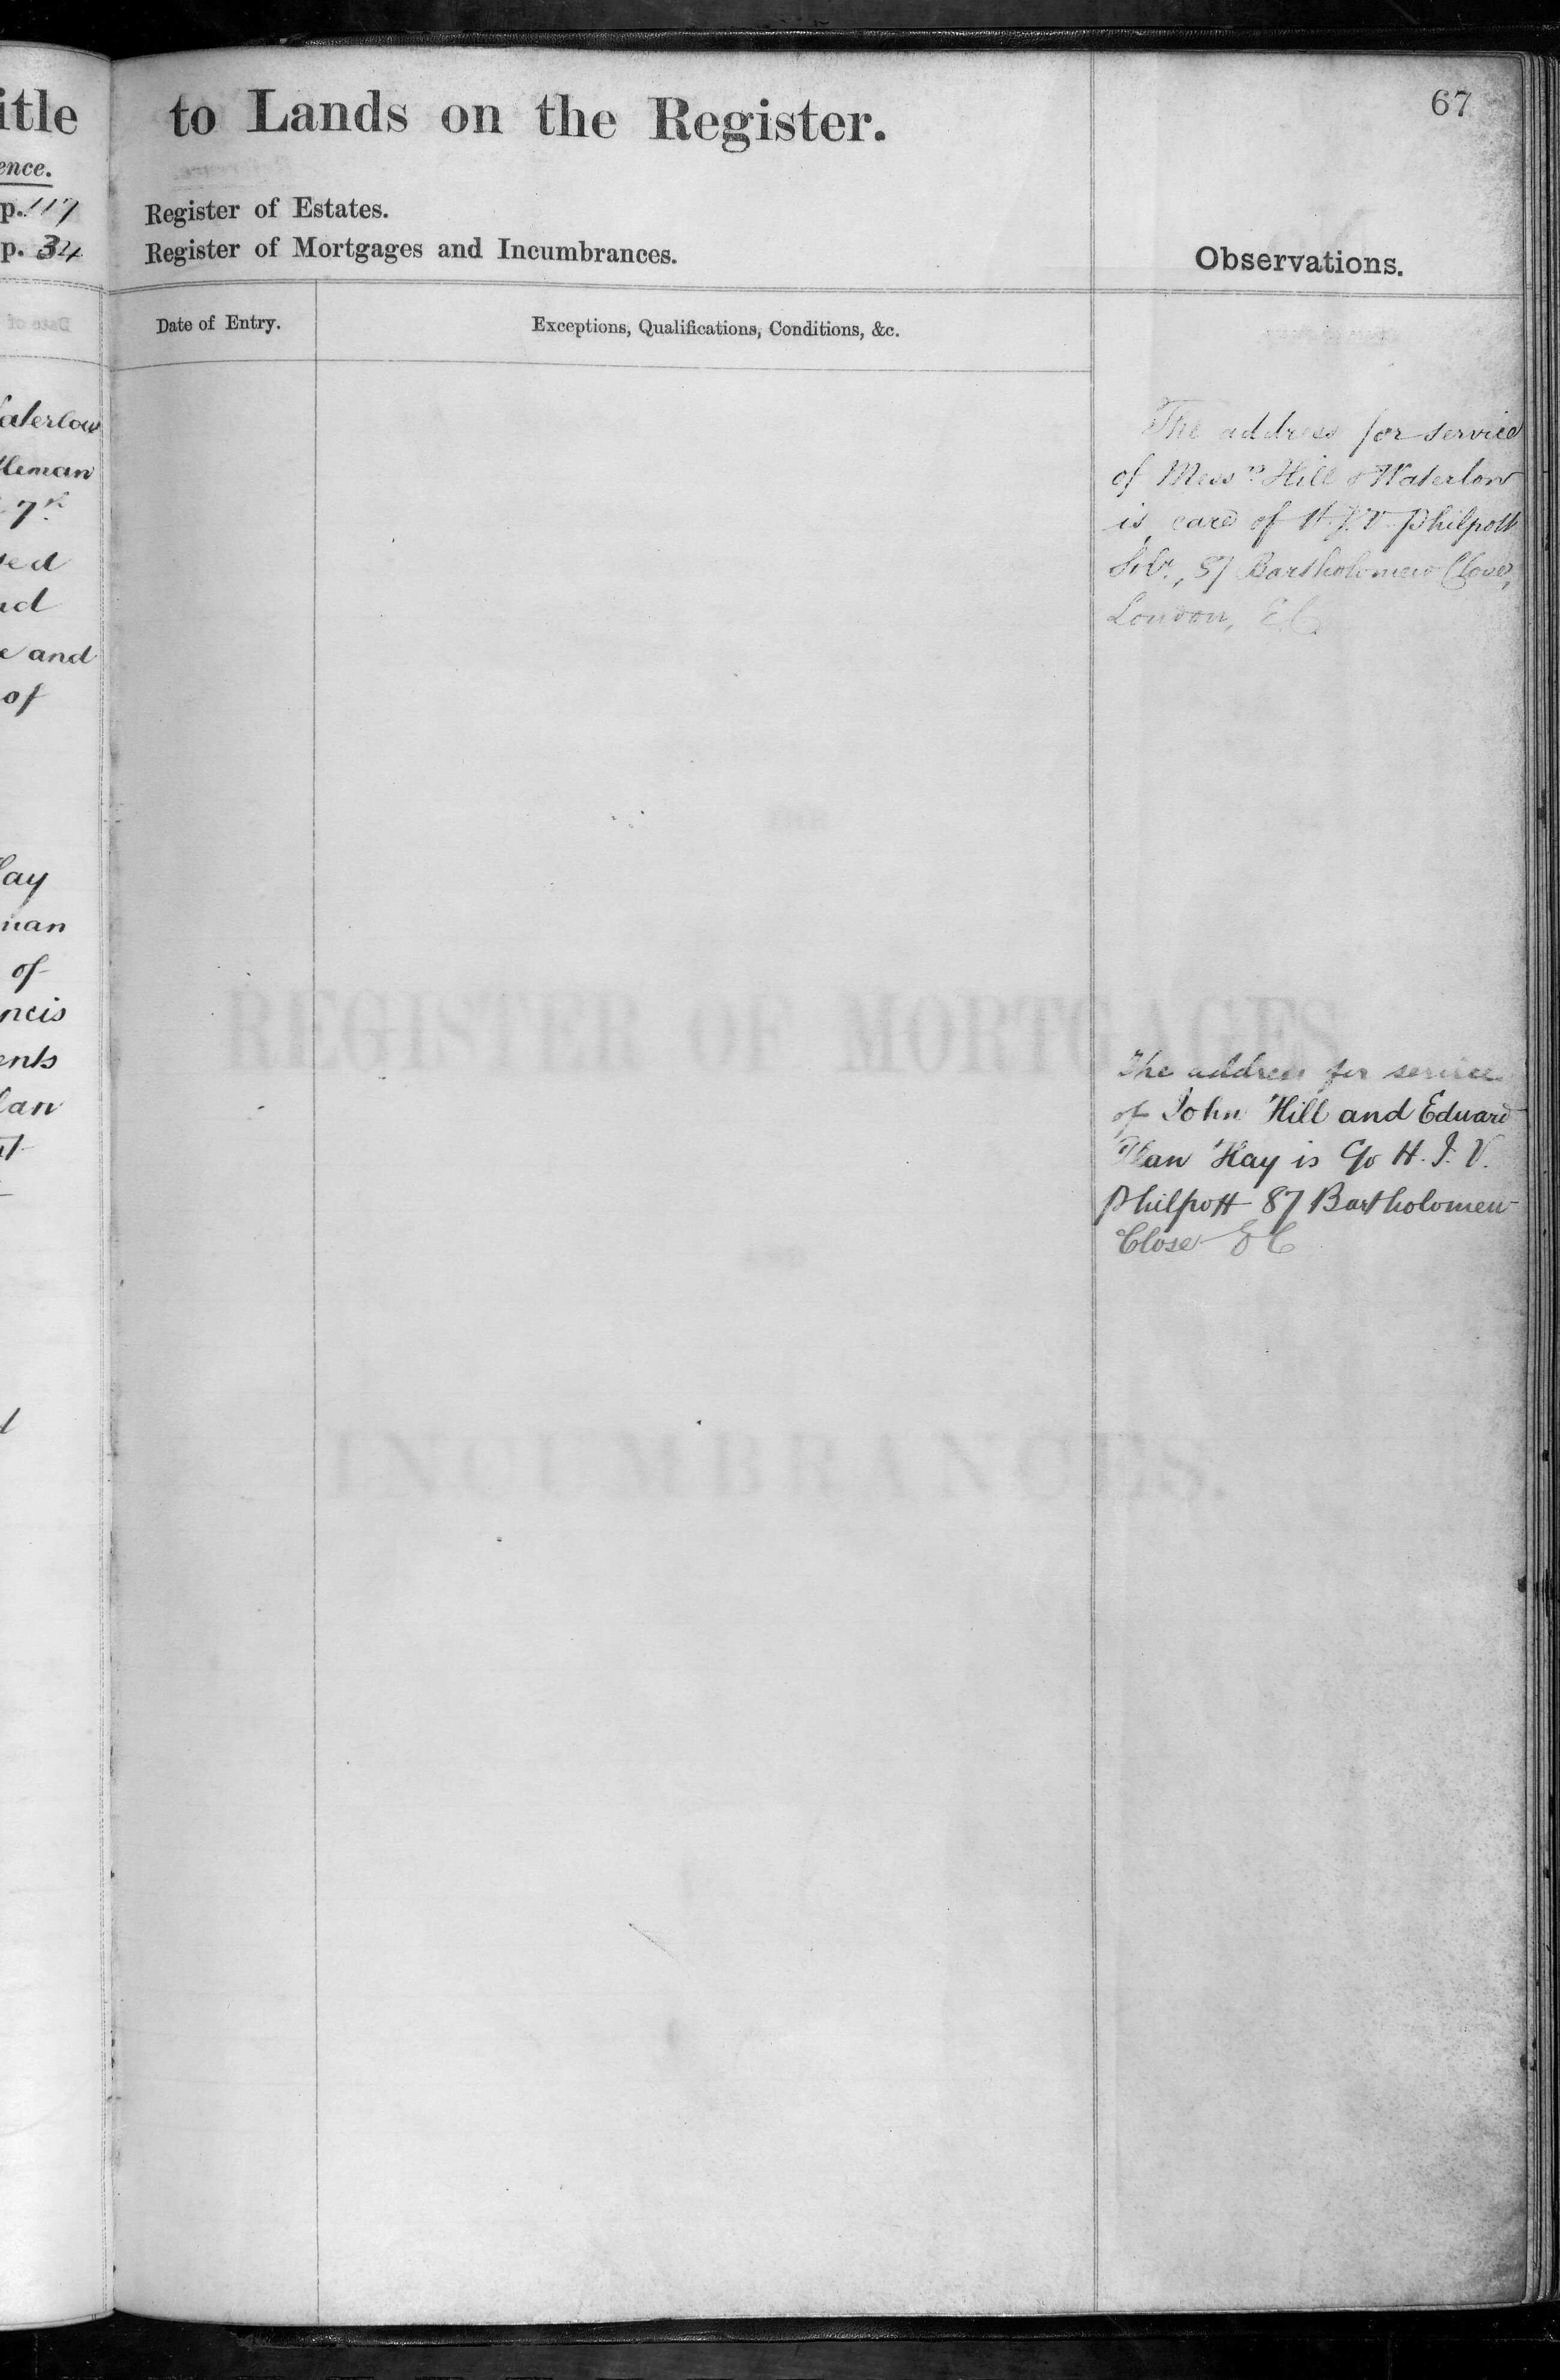 itle
ence.
p. 117
p. 34
aterlow
tleman
7th
sed
nd
e and
of
ay
man
of
ncis
ents
lan
to Lands on the Register.
67
Register of Estates.
Register of Mortgages and Incumbrances.
Observations.
Date of Entry.
Exceptions, Qualifications, Conditions, &c.
The address for service
of Messrs Hill & Waterlow
is care of H.J.V. Philpott
Solr., 87 Bartholomew Close,
London, E.C.
REGISTER OF MORTGAGES
The address for service
of John Hill and Edward
Alan Hay is c/o H. J. V.
Philpott 87 Bartholomew
Close E C
INCUMBRANCES.